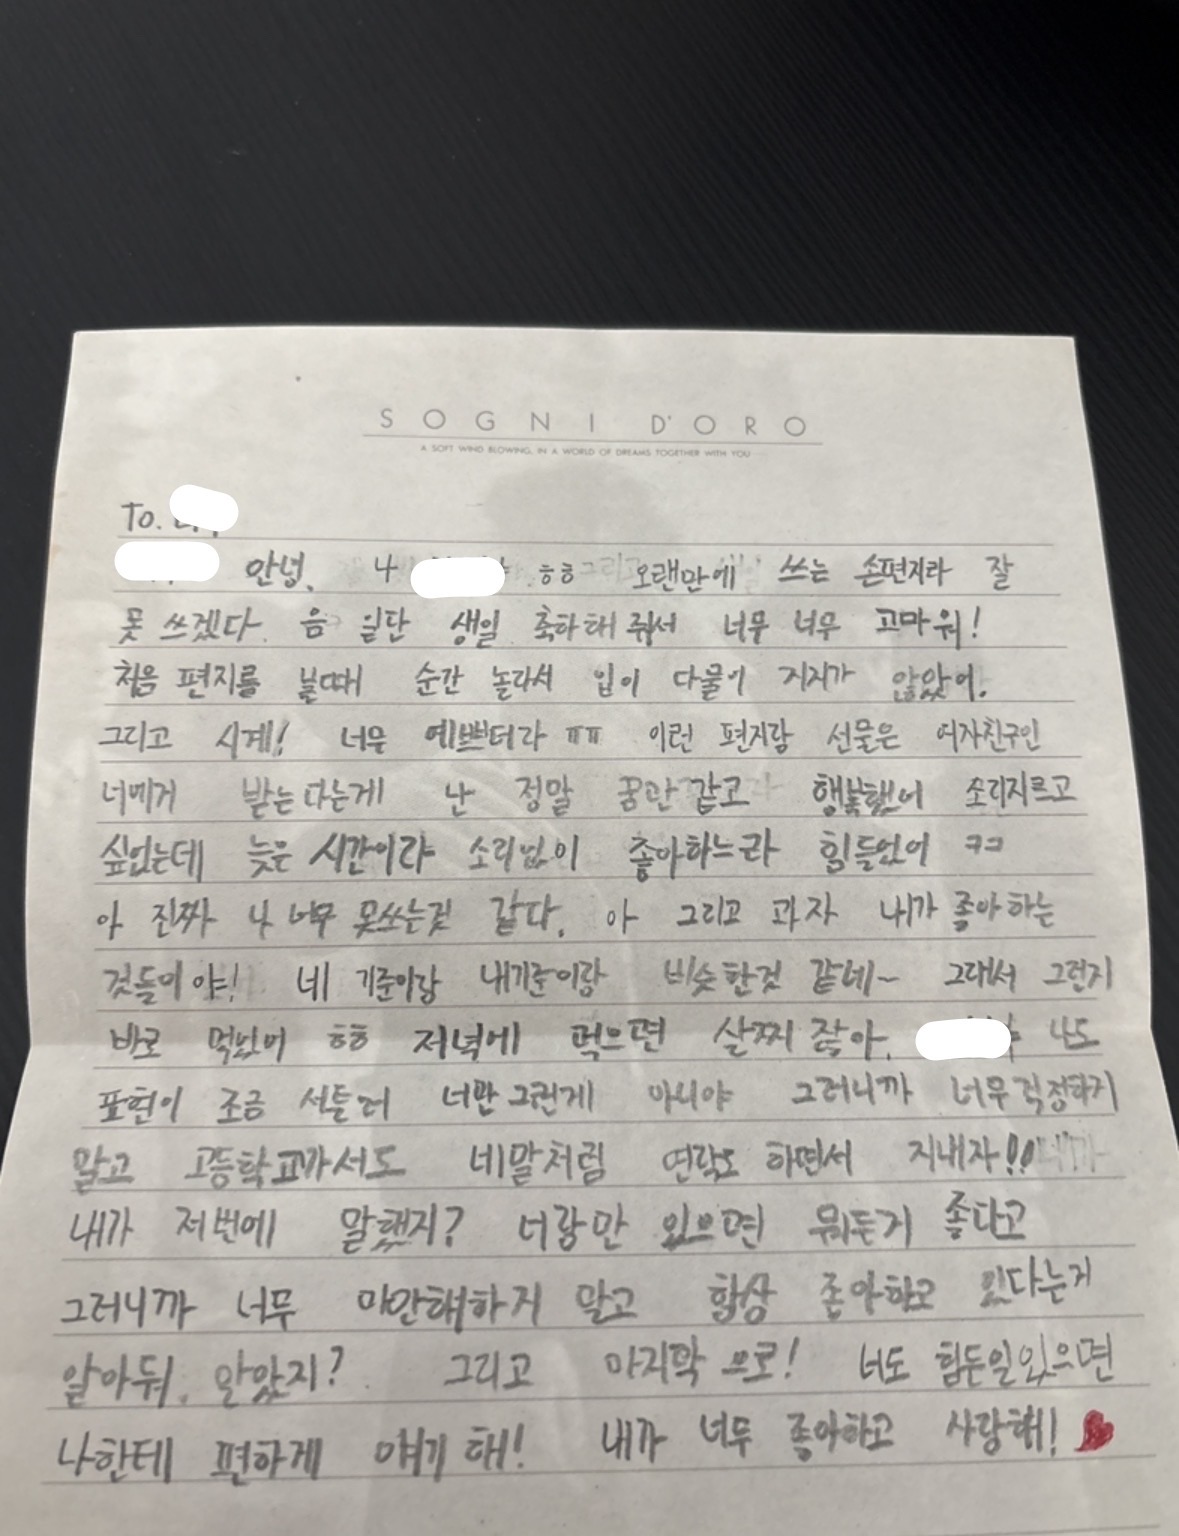 SOGNI D'ORO
A SOFT WIND BLOWING, IN A WORLD OF DREAMS TOGETHER WITH YOU
To.
안녕, 나 ㅎㅎ 오랜만에 쓰는 손편지라 잘
못 쓰겠다. 음 일단 생일 축하해 줘서 너무 너무 고마워!
처음 편지를 볼때 순간 놀라서 입이 다물어 지지가 않았어.
그리고 시계! 너무 예쁘더라 ㅠㅠ 이런 편지랑 선물은 여자친구인
너에게 받는다는게 난 정말 꿈만 같고 행복했어 소리지르고
싶었는데 늦은 시간이라 소리없이 좋아하느라 힘들었어 ㅋㅋ
아 진짜 나 너무 못쓰는것 같다. 아 그리고 과자 내가 좋아하는
것들이야! 네 기준이랑 내기준이랑 비슷한것 같네~ 그래서 그런지
바로 먹었어 ㅎㅎ 저녁에 먹으면 살찌잖아. 나도
표현이 조금 서툴러 너만 그런게 아니야 그러니까 너무걱정하지
말고 고등학교가서도 네말처럼 연락도 하면서 지내자!!
내가 저번에 말했지? 너랑만 있으면 뭐든지 좋다고
그러니까 너무 미안해하지 말고 항상 좋아하고 있다는거
알아둬. 알았지? 그리고 마지막으로! 너도 힘든일있으면
나한테 편하게 얘기해! 내가 너무 좋아하고 사랑해!